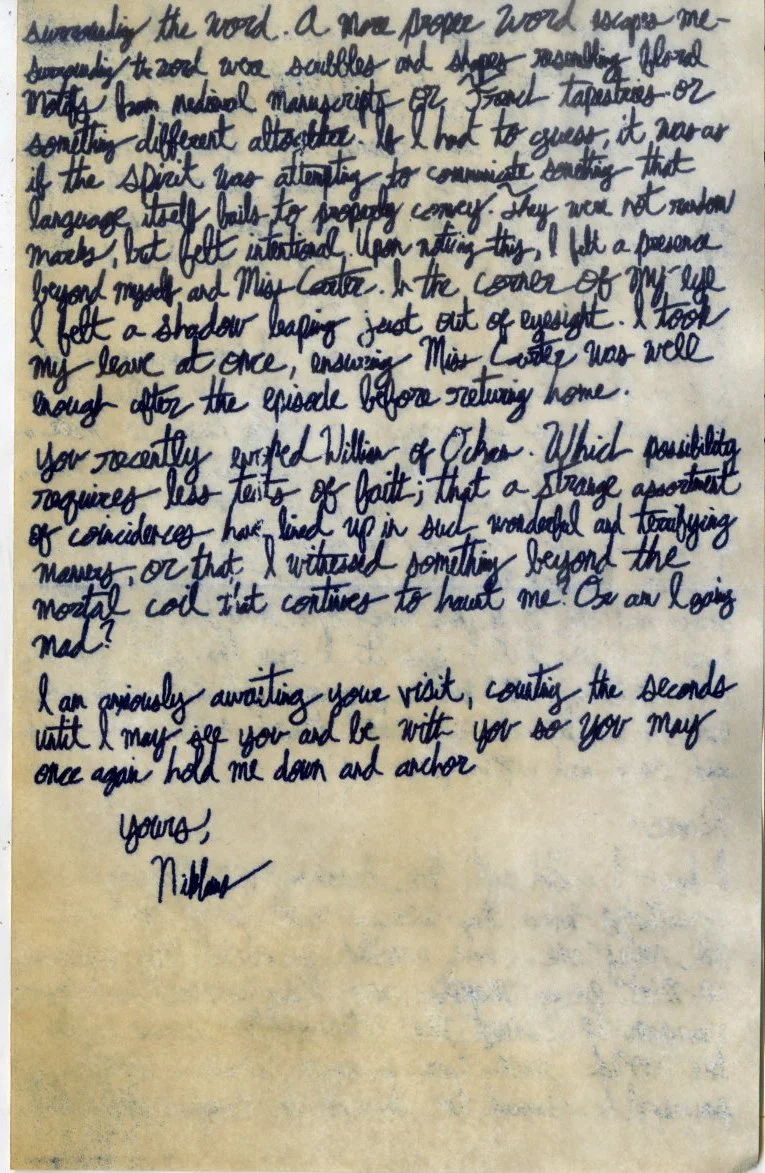 surrounding the word. A more proper word escapes me-
surrounding the word were scribbles and shapes resembling floral
motifs from medieval manuscripts or French tapestries or
something different altogether. If I had to guess, it was as
if the spirit was attempting to communicate something that
language itself fails to properly convey. They were not random
marks, but felt intentional. Upon noticing this, I felt a presence
beyond myself and Miss Carter. In the corner of my eye
I felt a shadow leaping just out of eyesight. I took
my leave at once, ensuring Miss Carter was well
enough after the episode before returning home.
You recently William of Ockham. Which possibility
requires less tests of faith; that a strange assortment
of coincidences have lined up in such wonderful and terrifying
manners, or that I witnessed something beyond the
mortal coil that continues to haunt me? Or am I going
mad?
I am anxiously awaiting your visit, counting the seconds
until I may see you and be with you so you may
once again hold me down and anchor
Yours,
Niklaus